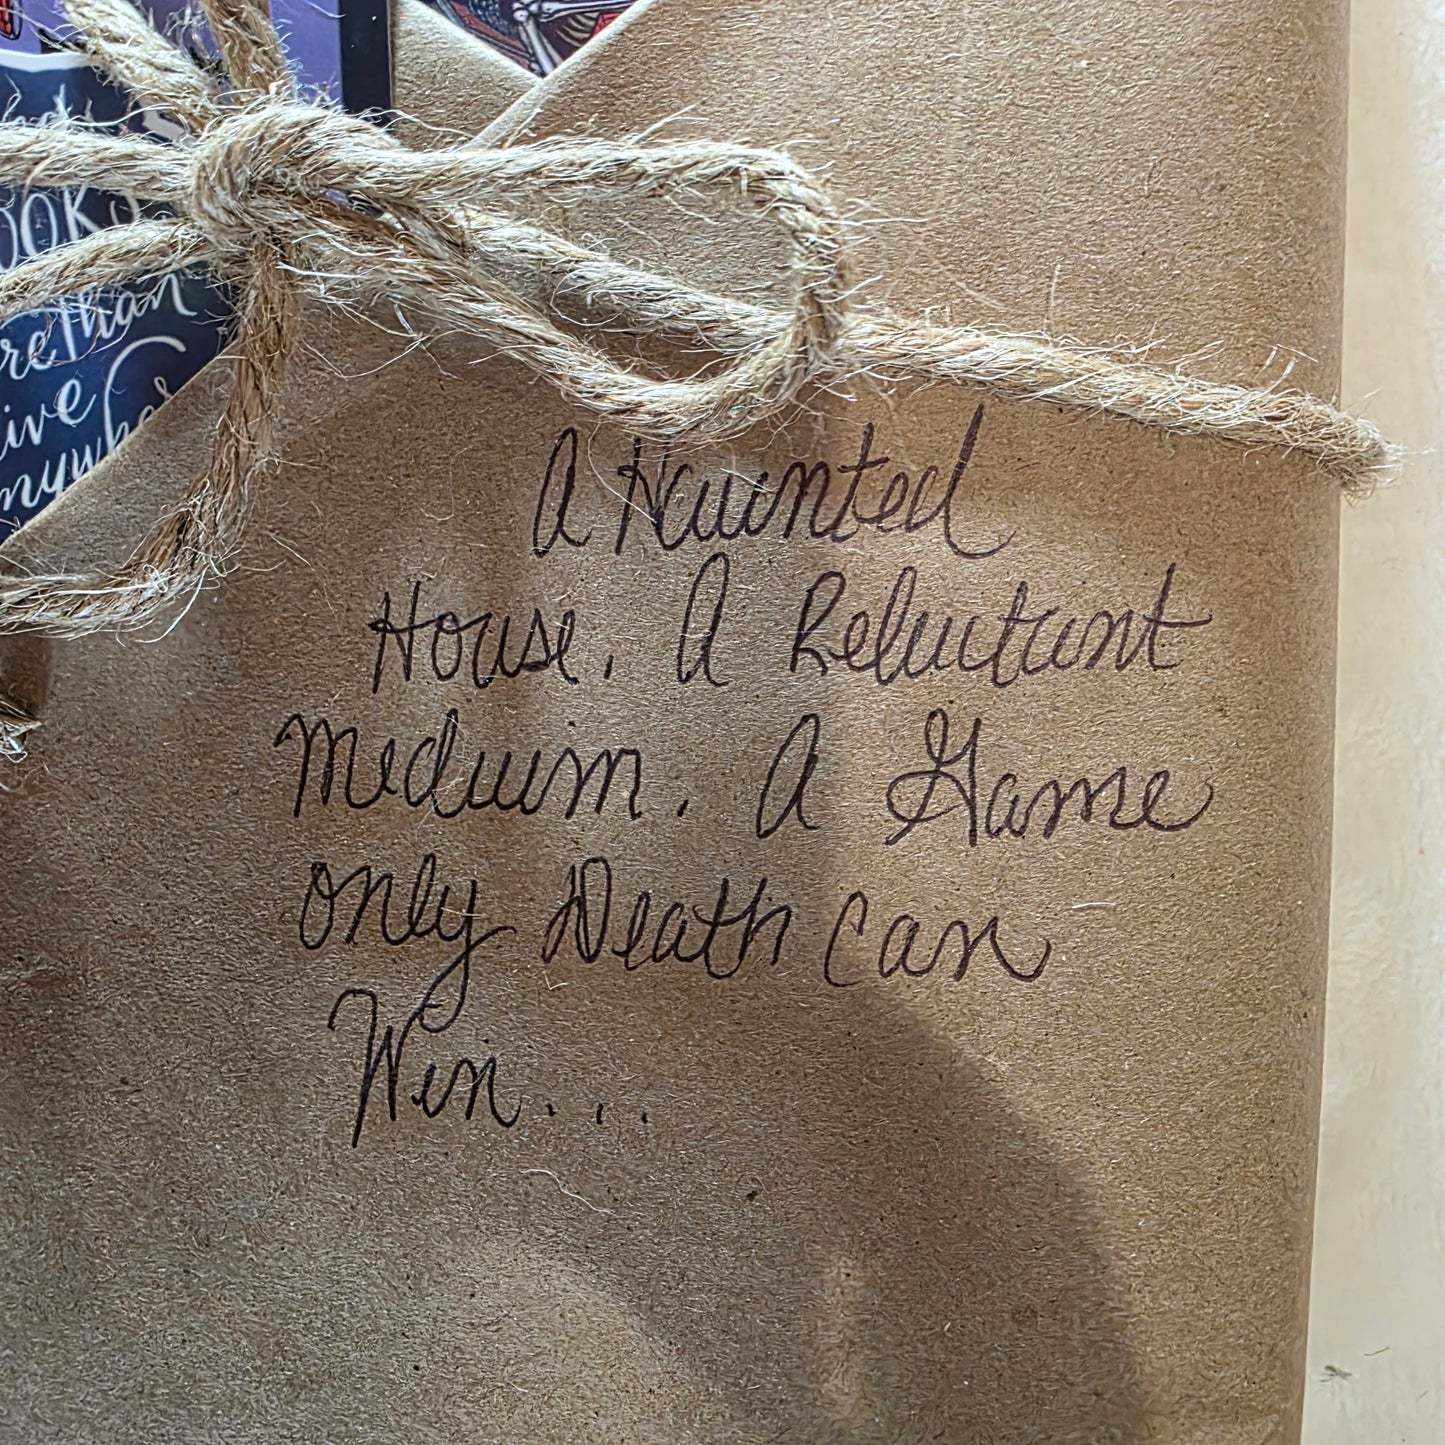 OOKS
re Than
ive
nywhe
A Haunted
House. A Reluctant
Medium. A Game
only Death Can
Win...